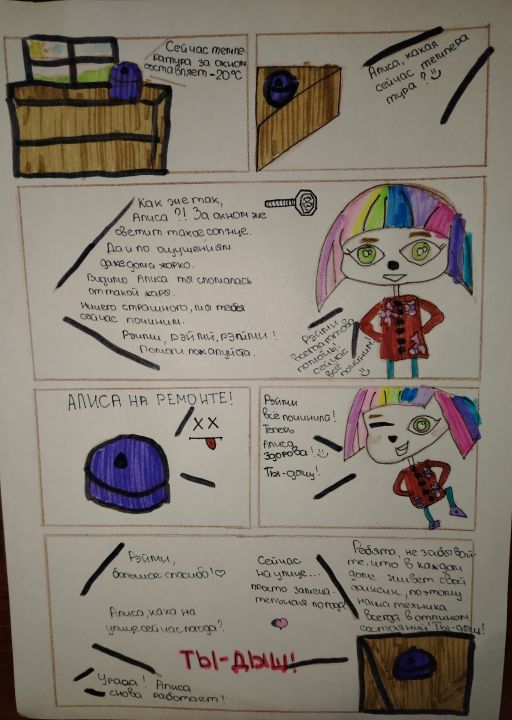 Сейчас темпе
ратура за окном
составляет -20°C
Алиса, какая
сейчас темпера
тура?
Как же так,
Алиса?! За окном же
светит такое солнце.
Да и по ощущениям
даже дома жарко.
Видимо Алиса то сломалась
от такой жары.
Ничего страшного, мы тебя
сейчас починим.
Рэйми, рэйми, рэйми!
Помоги пожалуйста.
Рэйми
всегда готова
помочь!
сейчас
всё
починим!
АЛИСА НА РЕМОНТЕ!
XX
Рэйми
всё починила!
Теперь
Алиса
здорова!
Ты-дыщ!
Рэйми,
большое спасибо!
Алиса, кака на
улице сейчас погода?
Сейчас
на улице...
просто замеча-
тельная погода!
Ребята, не забывай-
те, что в каждом
доме живет свой
фиксик, поэтому
наша техника
всегда в отличном
состоянии! Ты-дыщ!
ТЫ-ДЫЩ!
Урааа! Алиса
снова работает!